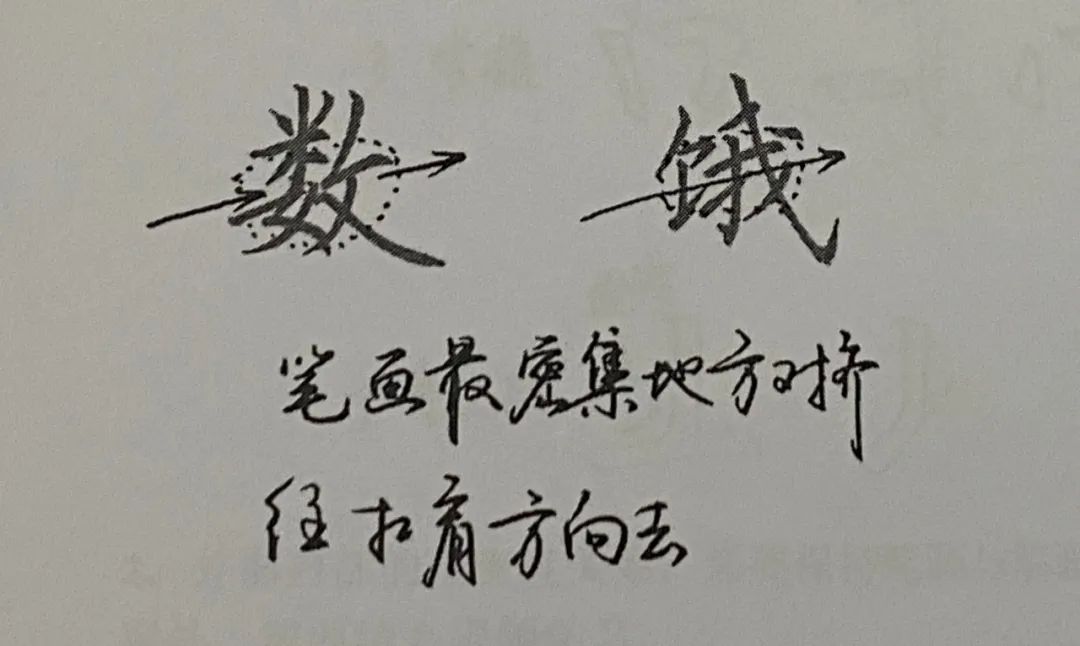 数 饿
笔画最密集地方对挤
往扛肩方向去